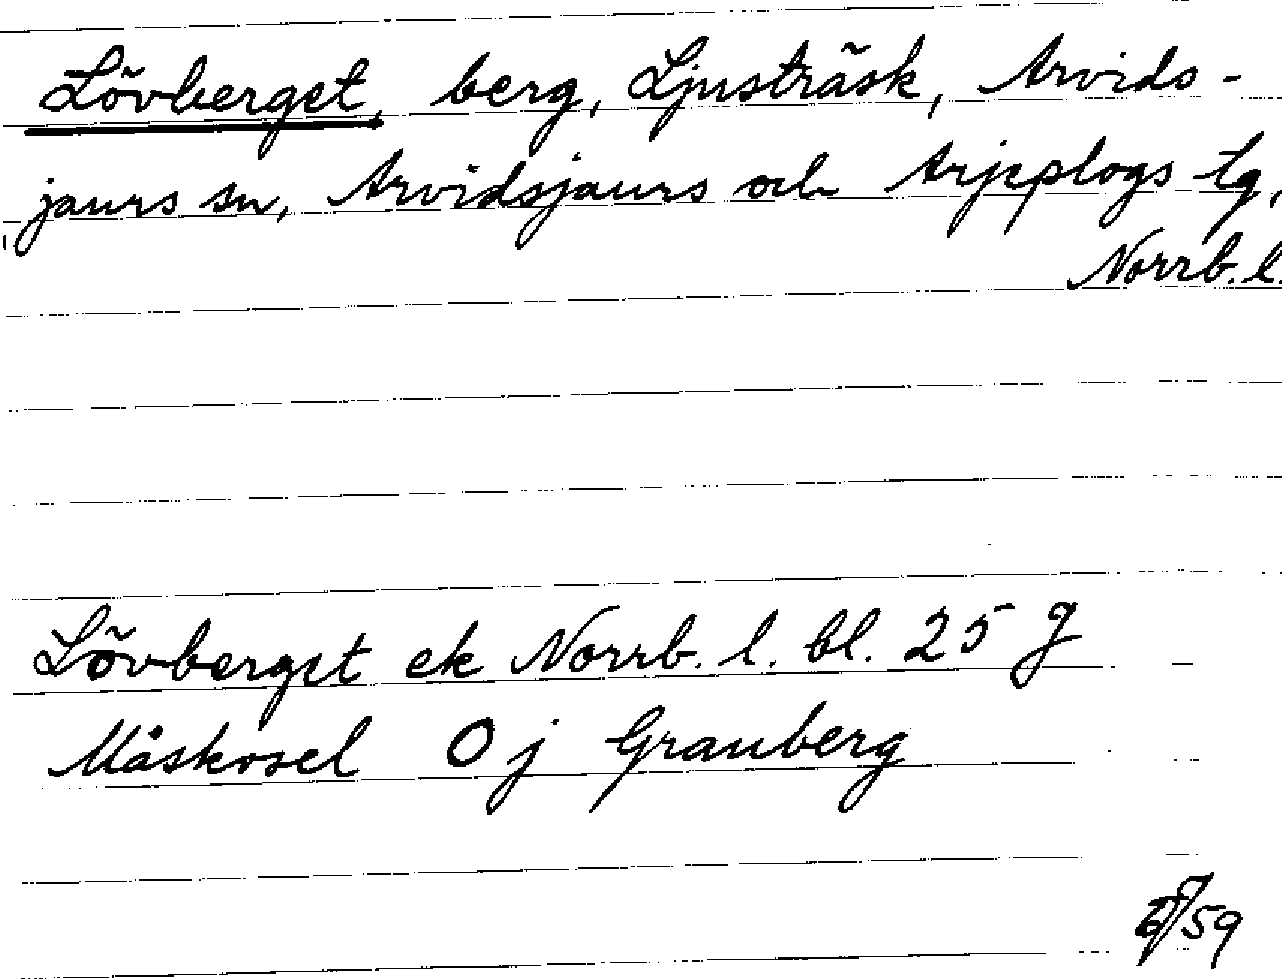 Lövberget, berg, Ljusträsk, Arvids-
jaurs sn, Arvidsjaurs och Arjeplogs tg,
Norrb. l.
Lövberget ek Norrb. l. bl. 25 g
Måskosel O j Granberg
/59